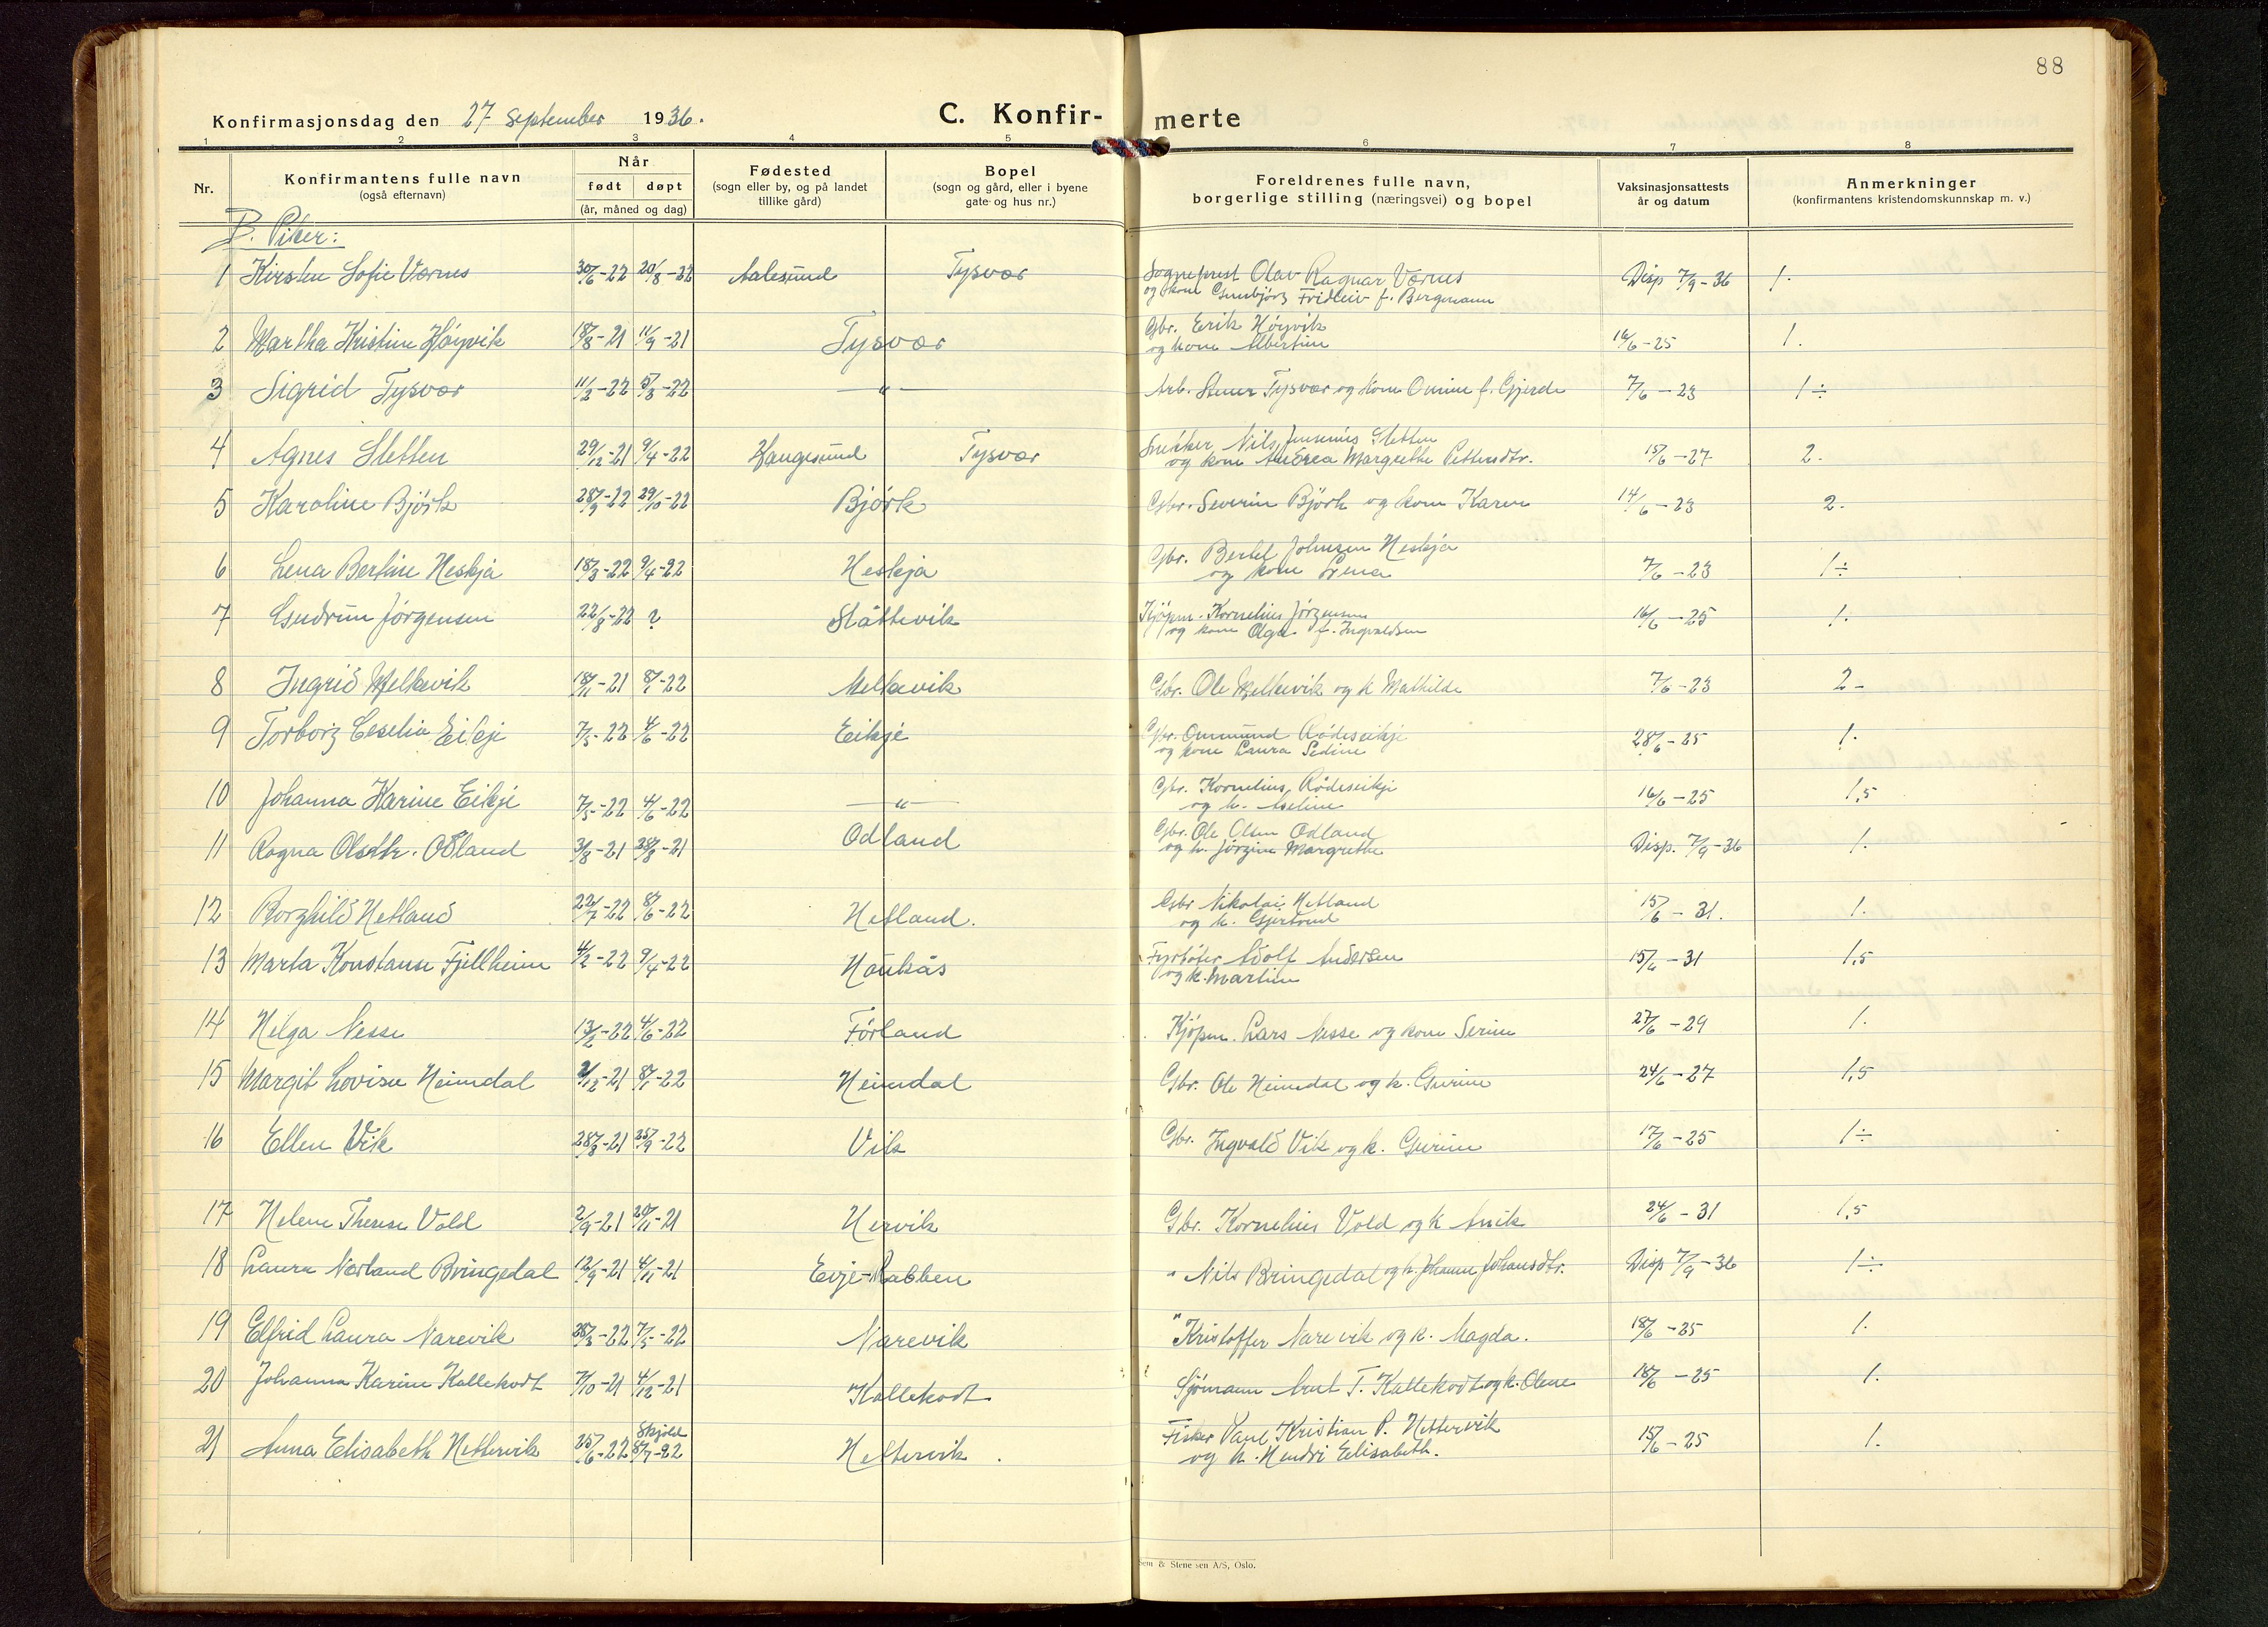 88
Konfirmasjonsdag den 27 september 1936.
C. Konfirmerte
1 2 3 4 5 6 7 8
Nr. Konfirmantens fulle navn (også efternavn) Når født døpt (år, måned og dag) Fødested (sogn eller by, og på landet tillike gård) Bopel (sogn og gård, eller i byene gate- og hus nr.) Foreldrenes fulle navn, borgerlige stilling (næringsvei) og bopel Vaksinasjonsattests år og datum Anmerkninger (konfirmantens kristendomskunnskap m. v.)
B. Piker:
1 Kirsten Sofie Værnes 30/6-22 20/8-22 Aalesund Tysvær Sogneprest Olav Ragnar Værnes Disp 7/9-36 1.
og kone Gunbjørg Fridleiv f. Bergmann
2 Martha Kristine Høyvik 18/8-21 11/9-21 Tysvær Gbr. Erik Høyvik 16/6-25 1.
og kone Albertine
3 Sigrid Tysvær 11/2-22 5/3-22 —"— Arb. Stener Tysvær og kone Omine f. Gjerde 7/6-23 1÷
4 Agnes Sletten 29/12-21 9/4-22 Haugesund Tysvær Snikker Nils Jensenius Sletten 15/6-27 2.
og kone Andrea Margrethe Pettersdtr.
5 Karoline Bjørk 28/9-22 29/10-22 Bjørk Gbr. Severin Bjørk og kone Karen 14/6-23 2.
6 Lena Bertine Heskja 18/3-22 9/4-22 Heskja Gbr. Bertel Johnsen Heskja 7/6-23 1÷
og kone Lena
7 Gudrun Jørgensen 22/8-22 ? Slåttevik Kjøpm. Kornelius Jørgensen 16/6-25 1.
og kone Olga f. Ingvaldsen
8 Ingrid Mellevik 18/11-21 8/1-22 Mellevik Gbr. Ole Mellevik og k Mathilde 7/6-23 2-
9 Torborg Ceselia Eikje 7/5-22 4/6-22 Eikje Gbr. Ommund Rødeseikje 28/6-25 1.
og kone Laura Sedine
10 Johanna Karine Eikje 7/5-22 4/6-22 —"— Gbr. Kornelius Rødeseikje 16/6-25 1,5
og k. Aseline
11 Ragna Olsdtr. Odland 3/8-21 28/8-21 Odland Gbr. Ole Olsen Odland Disp. 7/9-36 1.
og k. Jørgine Margrethe
12 Borghild Hetland 22/7-22 8/6-22 Hetland. Gbr Nikolai Hetland 15/6-31. 1.
og k. Gjertrud
13 Marta Konstanse Fjellheim 4/2-22 9/4-22 Haukås Fyrbøter Adolf Andersen 15/6-31 1,5
og k. Martine
14 Helga Nesse 13/2-22 4/6-22 Førland Kjøpm. Lars Nesse og kone Serine 27/6-29 1.
15 Margit Lovise Heimdal 2/12-21 8/1-22 Heimdal Gbr. Ole Heimdal og k. Gurine 24/6-27 1,5
16 Ellen Vik 28/8-21 25/9-22 Vik Gbr. Ingvald Vik og k. Gurine 17/6-25 1÷
17 Helene Therese Vold 2/9-21 20/11-21 Hervik Gbr. Kornelius Vold og k Anik 24/6-31 1,5
18 Laura Nærland Bringedal 12/9-21 4/11-21 Evje-Rabben " Nils Bringedal og k. Johanne Johansdtr. Disp 7/9-36 1÷
19 Elfrid Laura Narevik 28/3-22 7/5-22 Narevik " Kristoffer Narevik og k. Magda. 18/6-25 1.
20 Johanna Karine Kallekodt 7/10-21 4/12-21 Kallekodt Sjømann Arnt T. Kallekodt og k. Olene 18/6-25 1.
Skjold
21 Anna Elisabeth Hettervik 25/6-22 8/7-22 Hettervik. Fisker Paul Kristian P. Hettervik 15/6-25 1.
og k. Hendri Elisabeth.
Sem & Stenersen A/S, Oslo.